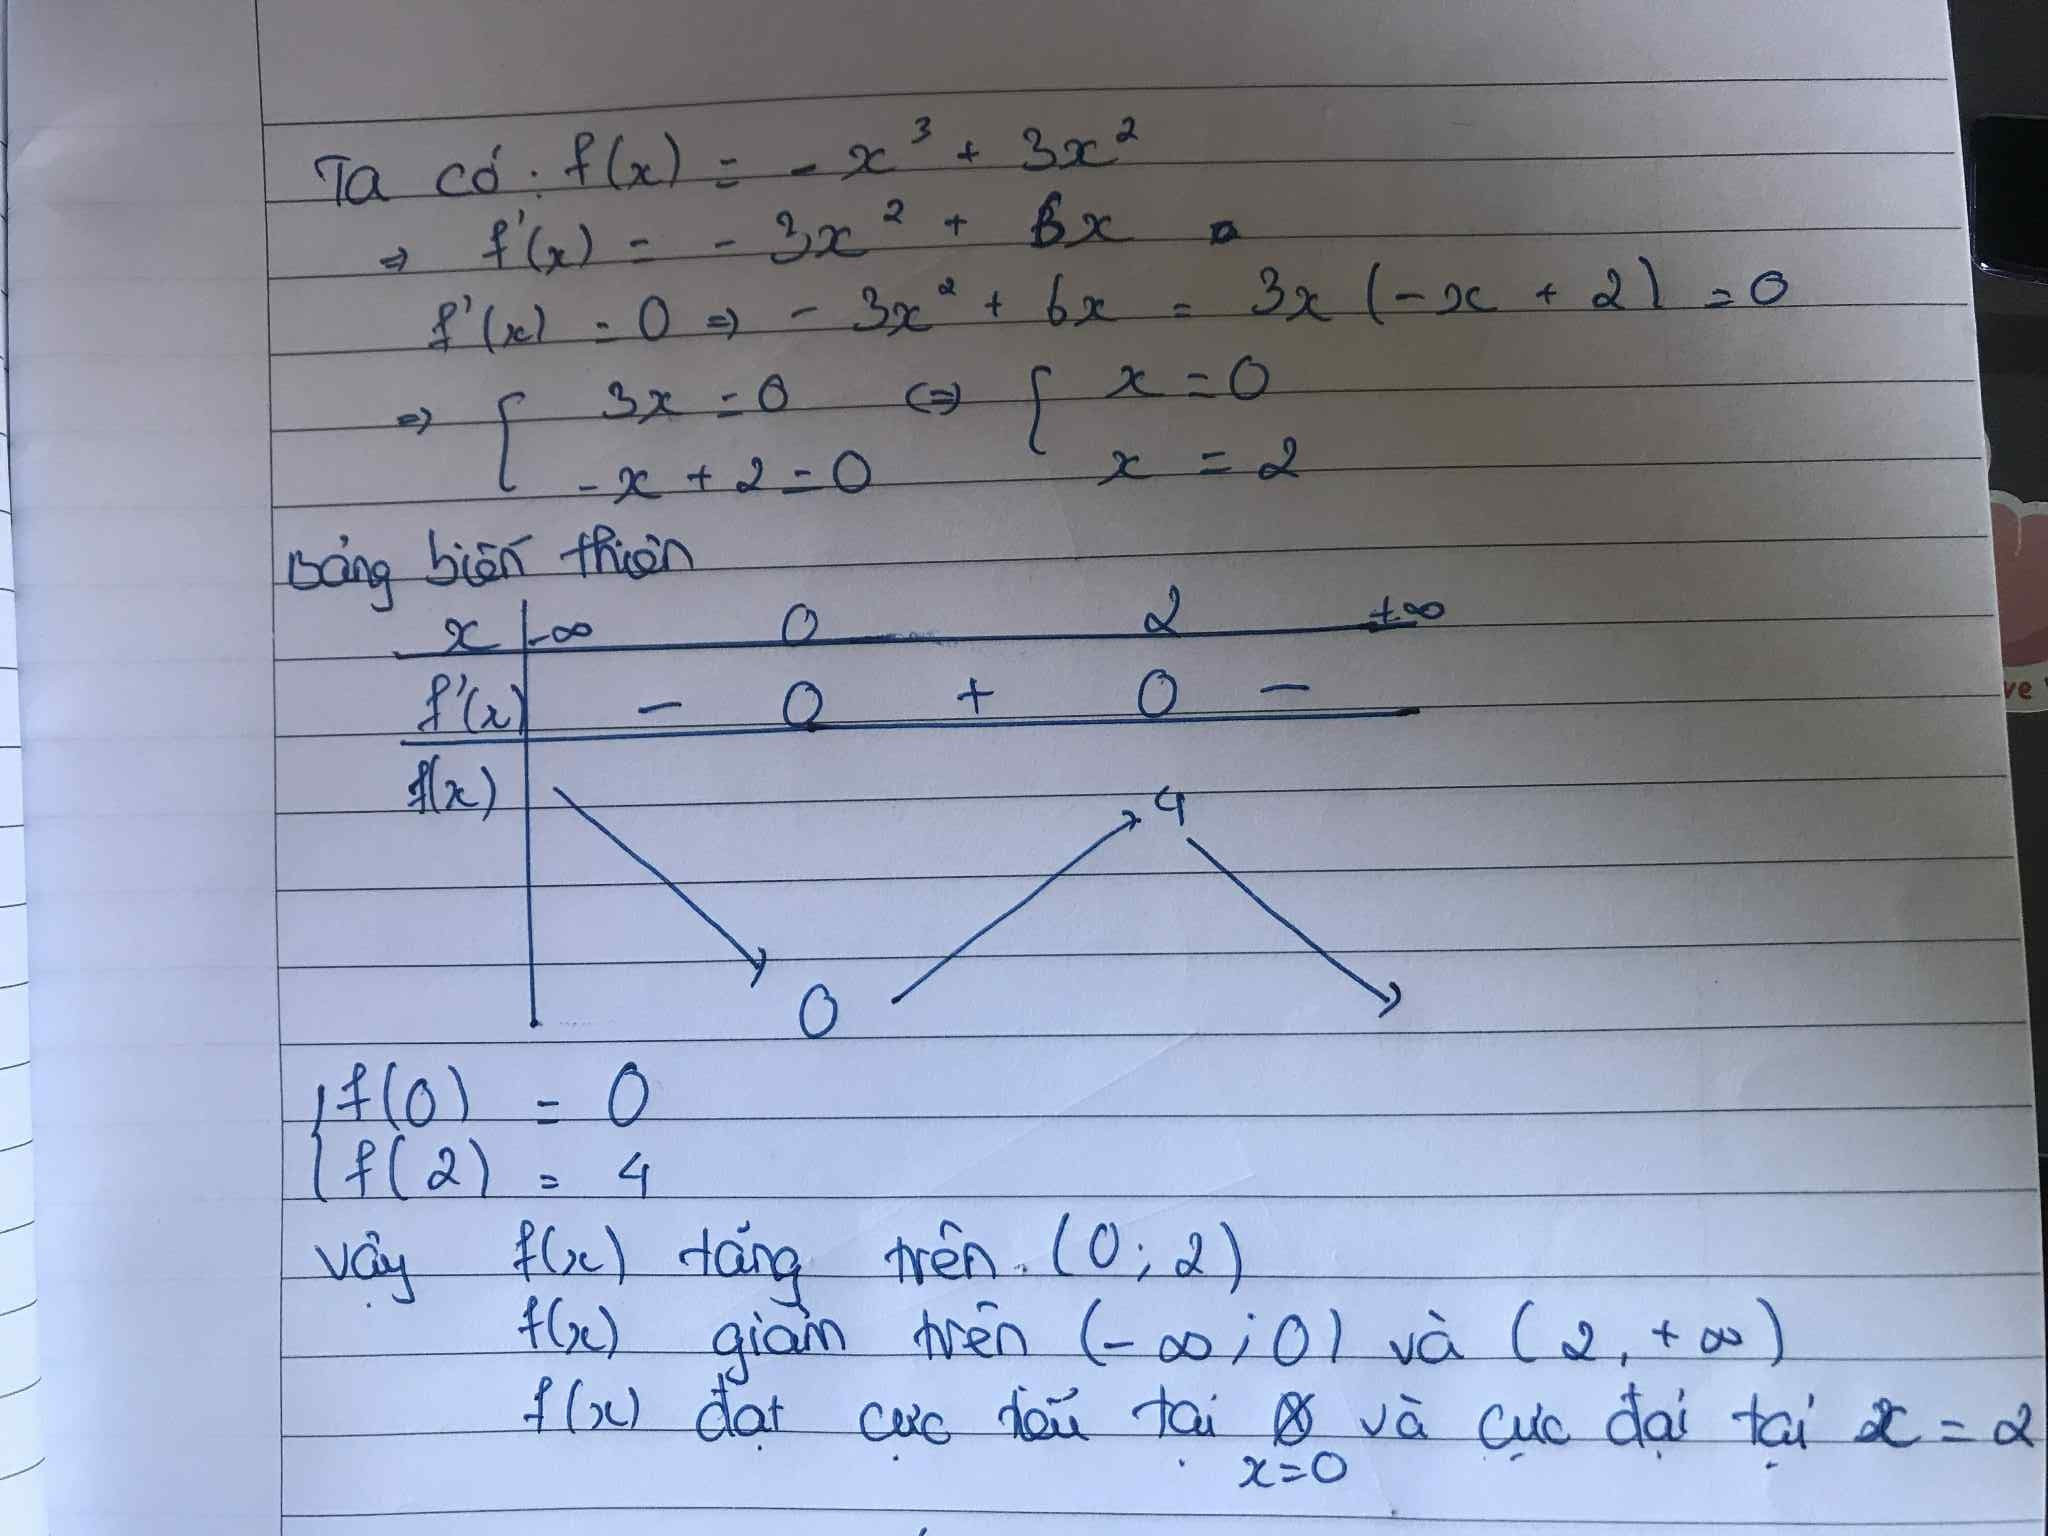 Ta có: f(x) = - x³ + 3x²
⇒ f'(x) = - 3x² + 6x
f'(x) = 0 ⇒ - 3x² + 6x = 3x (-x + 2) = 0
⇒ { 3x = 0 ⇔ { x = 0
-x + 2 = 0 x = 2
Bảng biến thiên
x -∞ 0 2 +∞
f'(x) - 0 + 0 -
f(x) 4
0
{ f(0) = 0
f(2) = 4
Vậy f(x) tăng trên (0; 2)
f(x) giảm trên (-∞; 0) và (2, +∞)
f(x) đạt cực tiểu tại x=0 và cực đại tại x = 2
ve